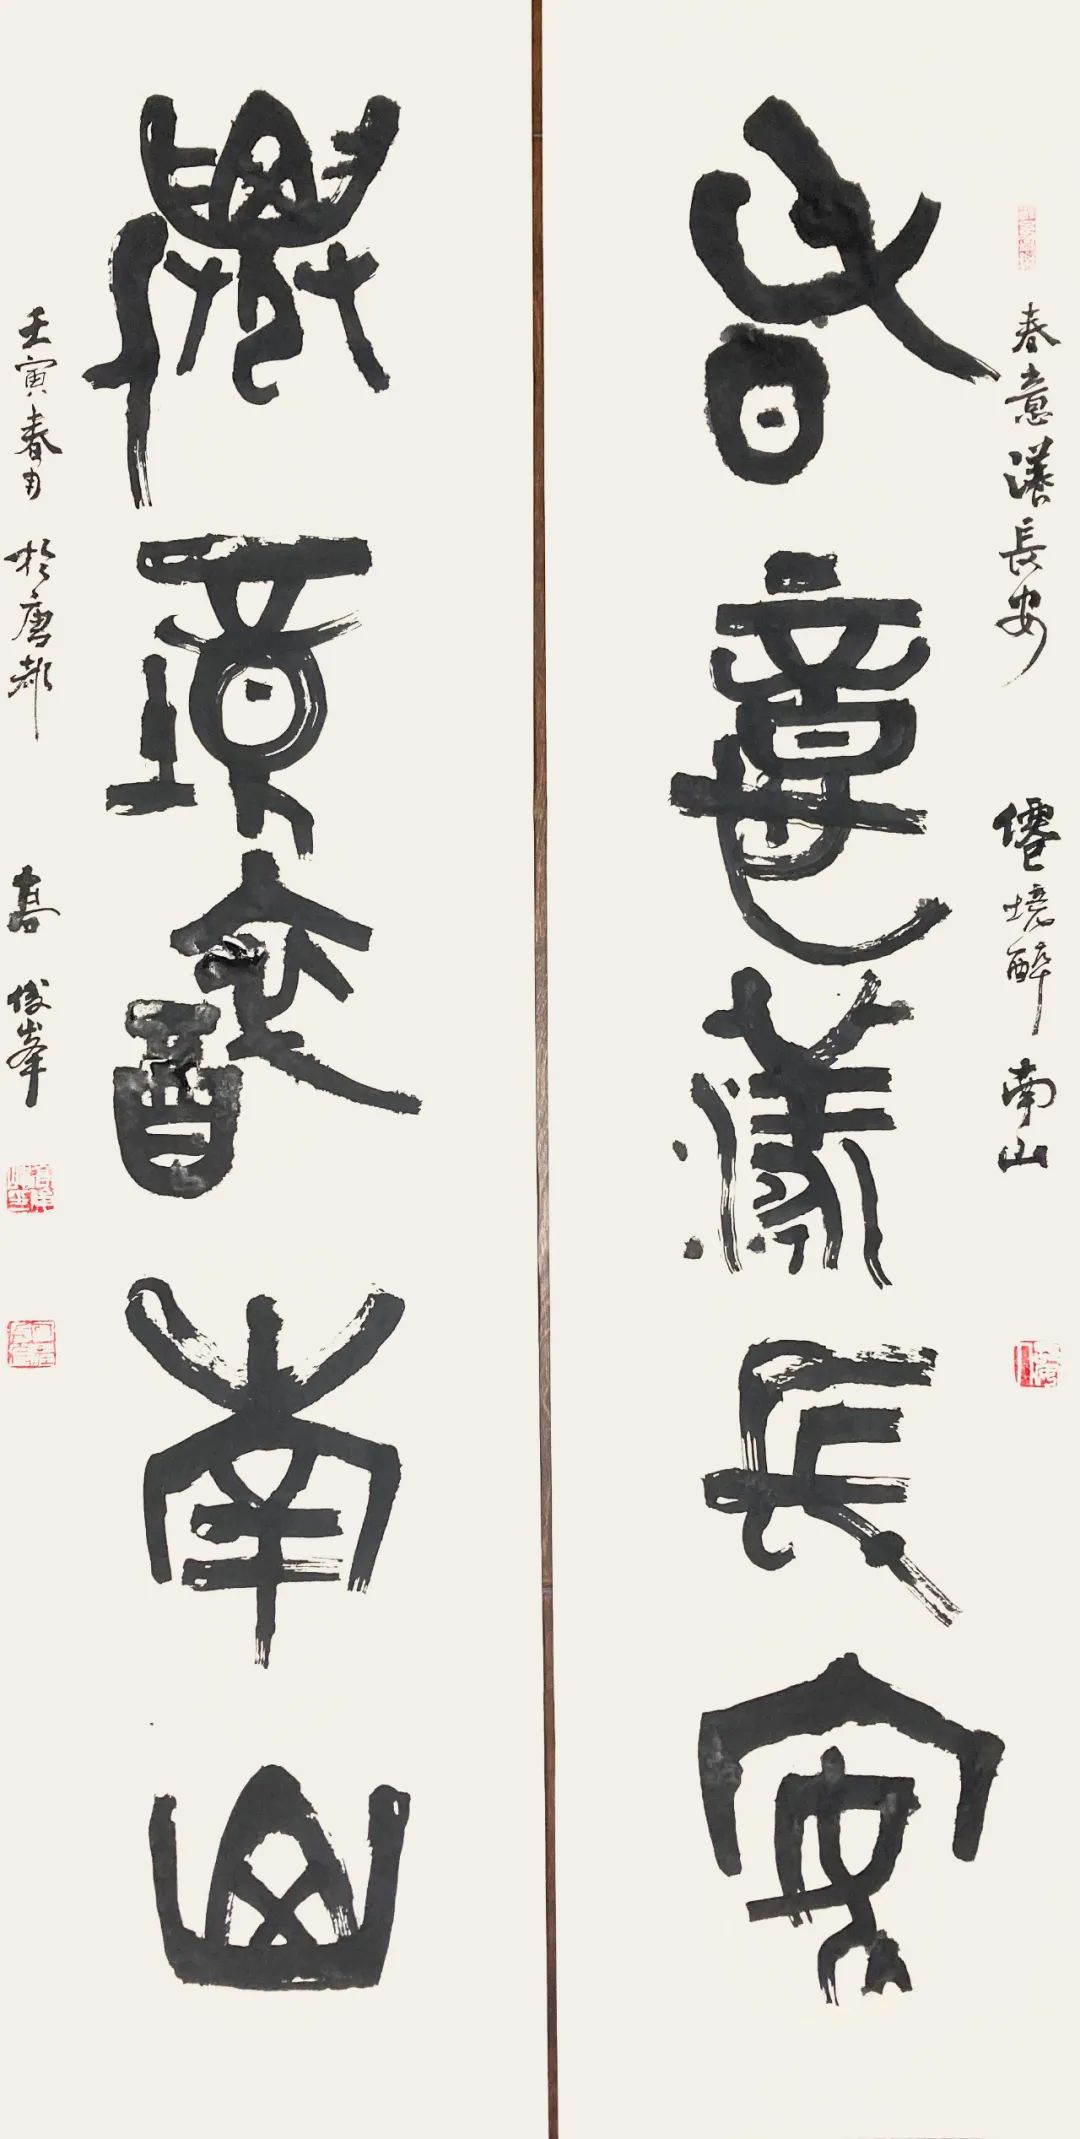 春意漾長安
僊境醉南山
春意漾長安
僊境醉南山
壬寅春月於唐都
高俊峯